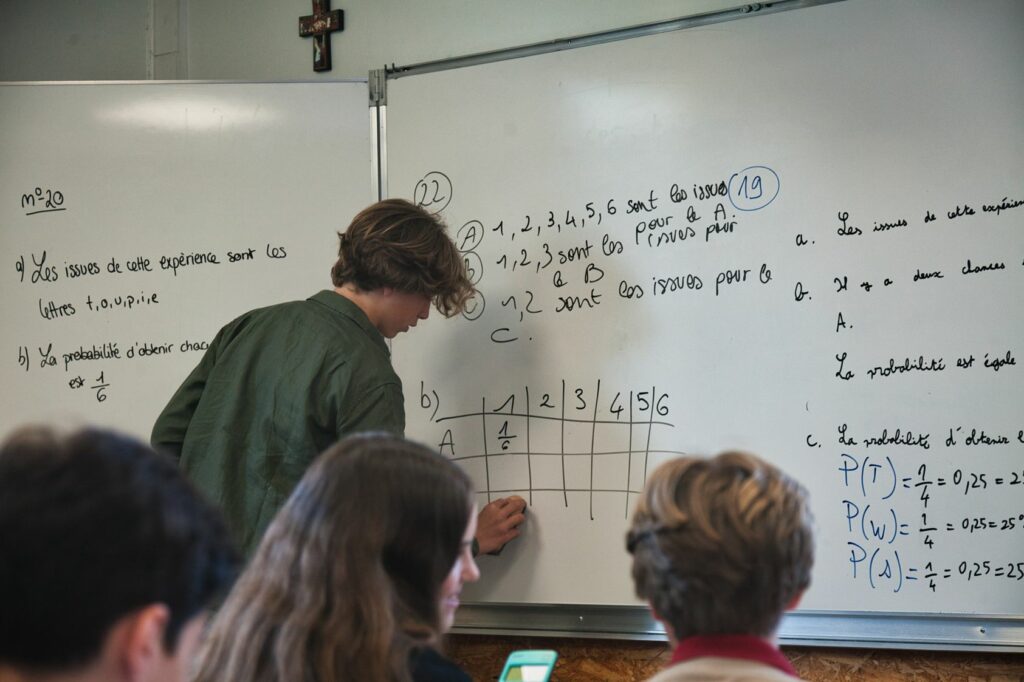 nº 20
a) Les issues de cette expérience sont les
lettres t, o, u, p, i, e
b) La probabilité d'obtenir
est 1/6
22
A 1, 2, 3, 4, 5, 6 sont les issues
pour le A.
1, 2, 3 sont les issues pour
le B
1, 2 sont les issues pour le
C.
b) 1 2 3 4 5 6
A 1/6
19
a. Les issues de cette
b. Il y a deux chances
A.
La probabilité est égale
c. La probabilité d'obtenir
P(T) = 1/4 = 0,25 =
P(W) = 1/4 = 0,25 = 25
P(S) = 1/4 = 0,25 = 25